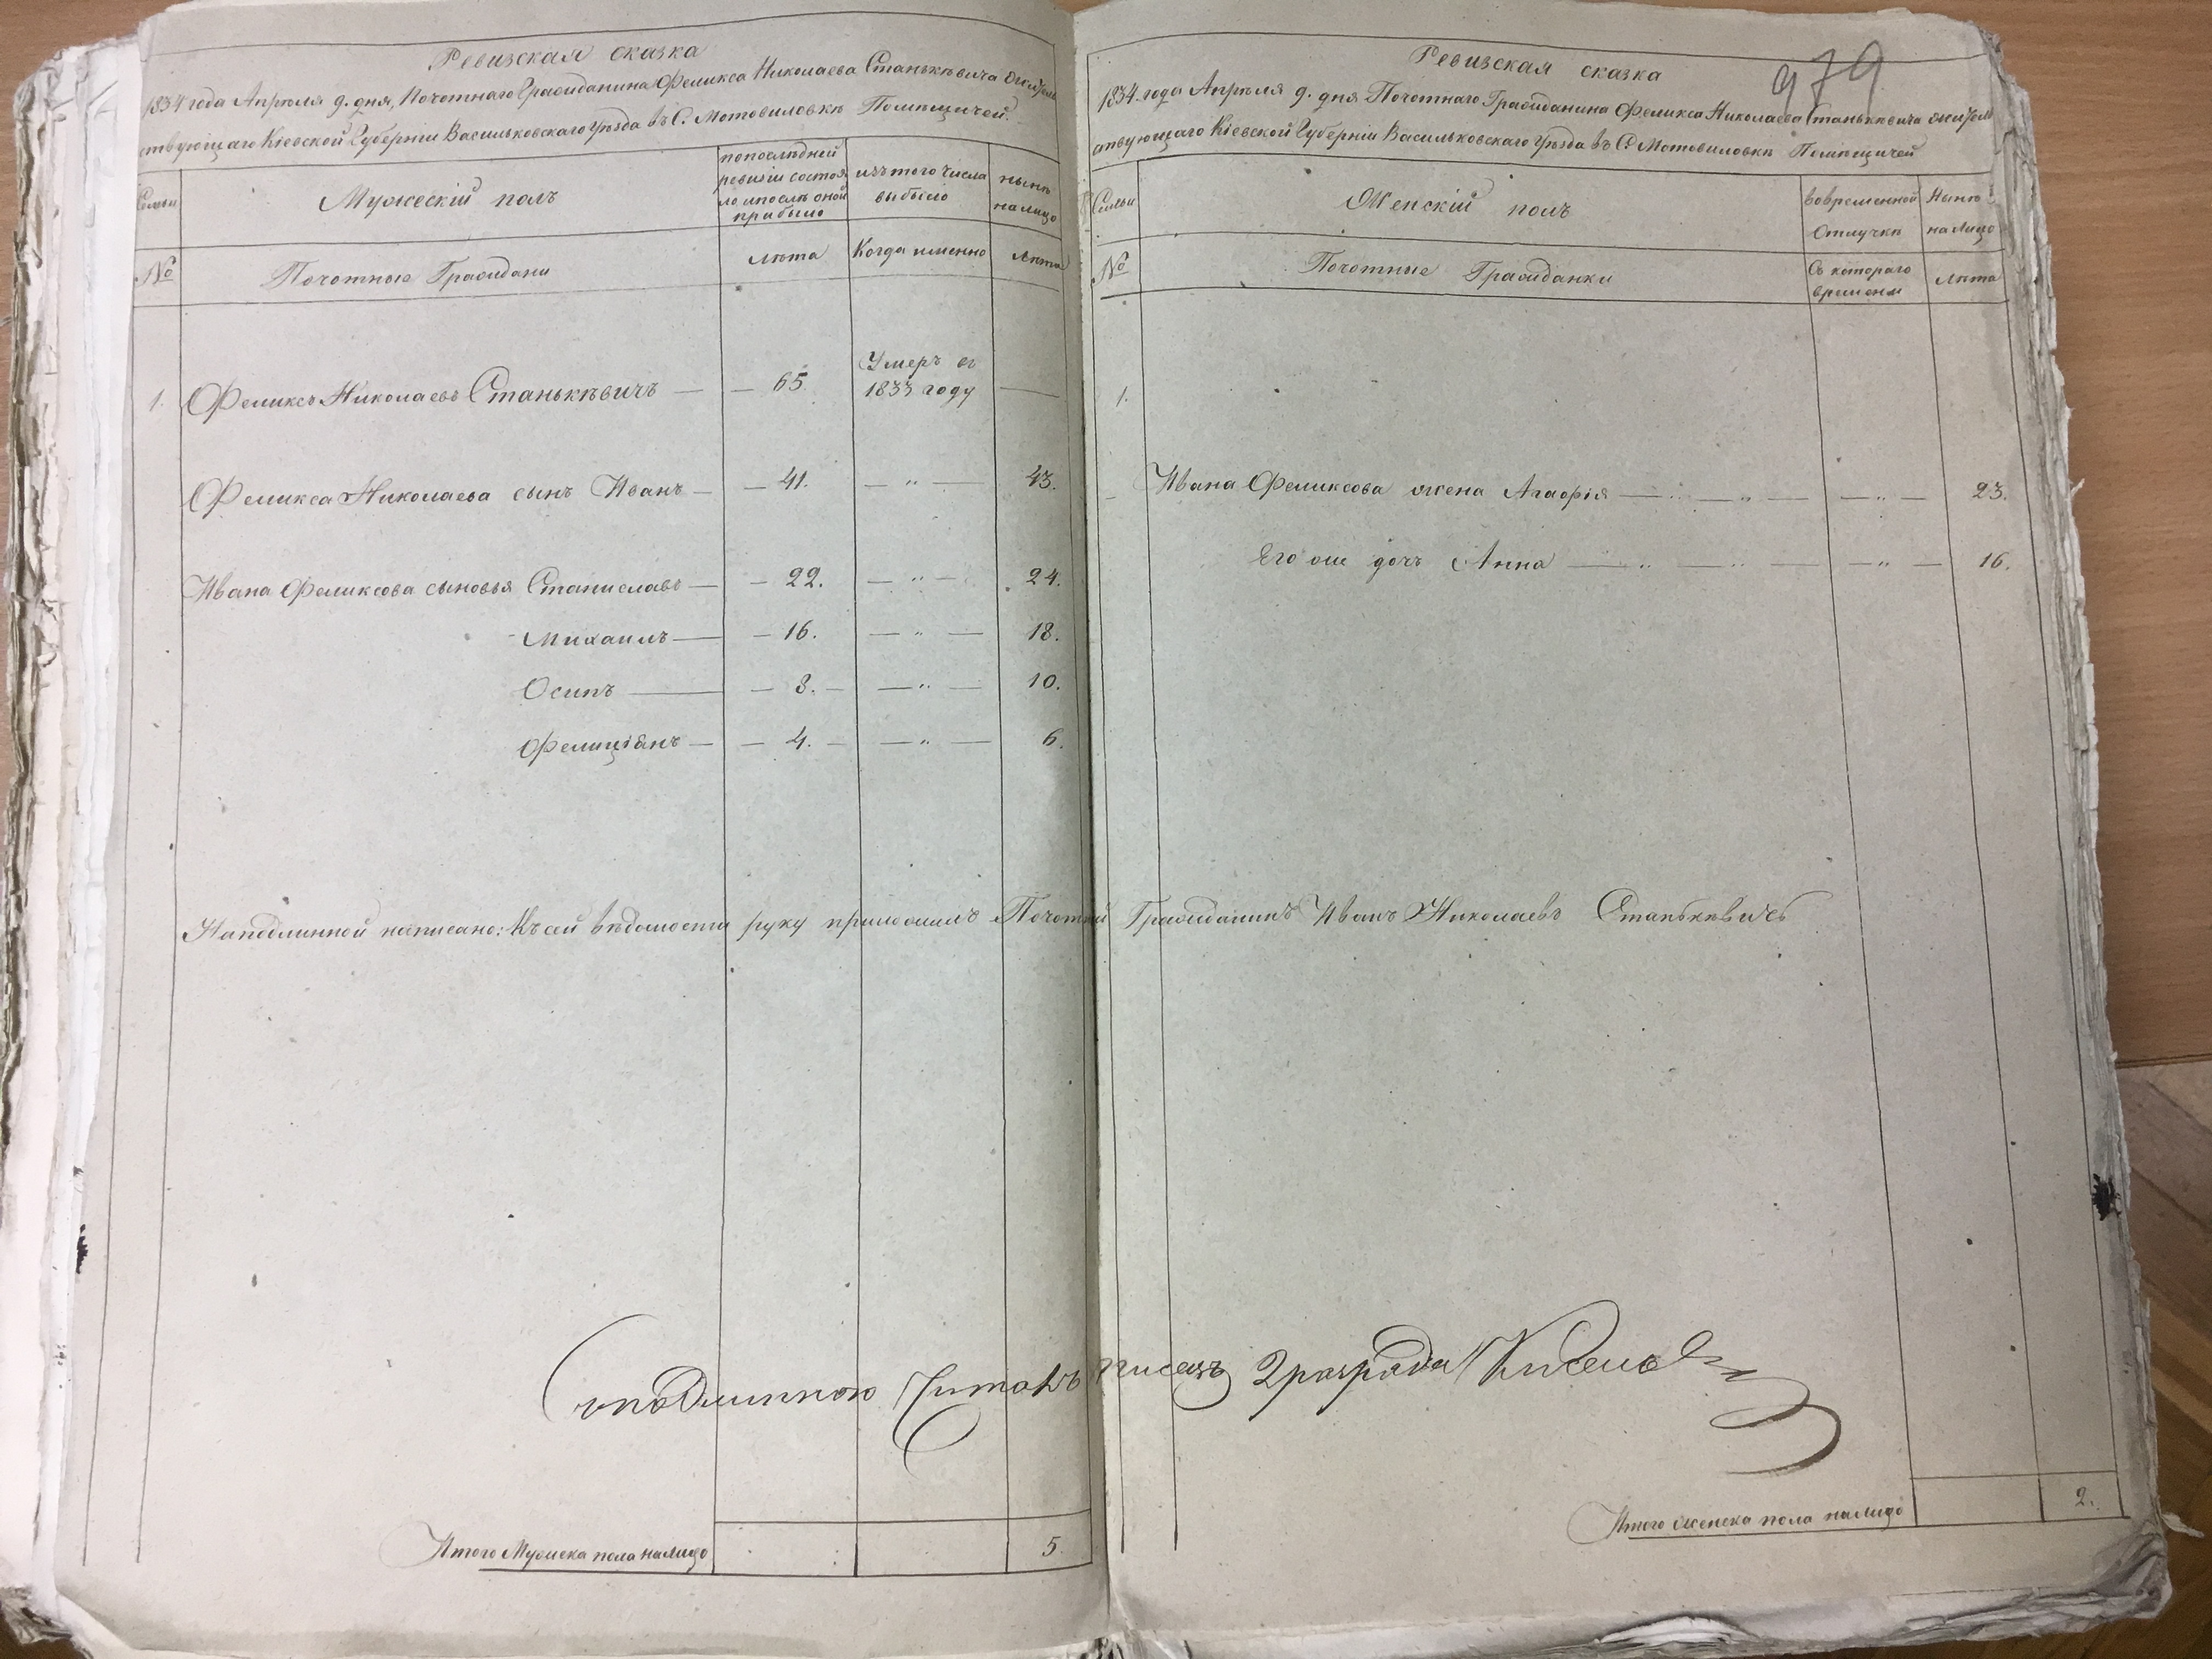 Ревизская сказка
1834 года Апреля 9. дня, Почотнаго Гражданина Феликса Николаева Станькевича жител
ствующаго Кіевской Губерніи Васильковскаго уезда въ С. Мотовиловке Помещичей.
Семьи
Мужескій полъ
попоследней
ревизіи состоя
ло ипосле оной
прибыло
изътого числа
выбыло
ныне
налицо
№
Почотные Граждани
лета
Когда именно
лета
1. Феликсъ Николаевъ Станькевичъ — — 65. Умеръ въ
1833 году —
Феликса Николаева сынъ Иванъ — — 41. — „ — 43.
Ивана Феликсова сыновья Станиславъ — — 22. — „ — 24.
Михаилъ — — 16. — „ — 18.
Осипъ — — 8. — — „ — 10.
Фелиціянъ — — 4. — — „ — 6.
979
Ревизская сказка
1834 года Апреля 9. дня Почотнаго Гражданина Феликса Николаева Станькевича жител
ствующаго Кіевской Губерніи Васильковскаго уезда въ С. Мотовиловке Помещичей
Семьи
Женскій полъ
вовременной
Отлучке
Ныне
на Лицо
№
Почотные Гражданки
Съ котораго
времени
лета
1.
Ивана Феликсова жена Агафія — „ — „ — — „ — 23.
Его же дочь Анна — „ — „ — — „ — 16.
Наподлинной написано: Къ сей ведомости руку приложилъ Почотній Гражданинъ Иванъ Николаевъ Станькевичъ
Сподлинною Читалъ писецъ 2 разряда Киселев
Итого Мужеска пола налицо 5.
Итого Женска пола налицо 2.